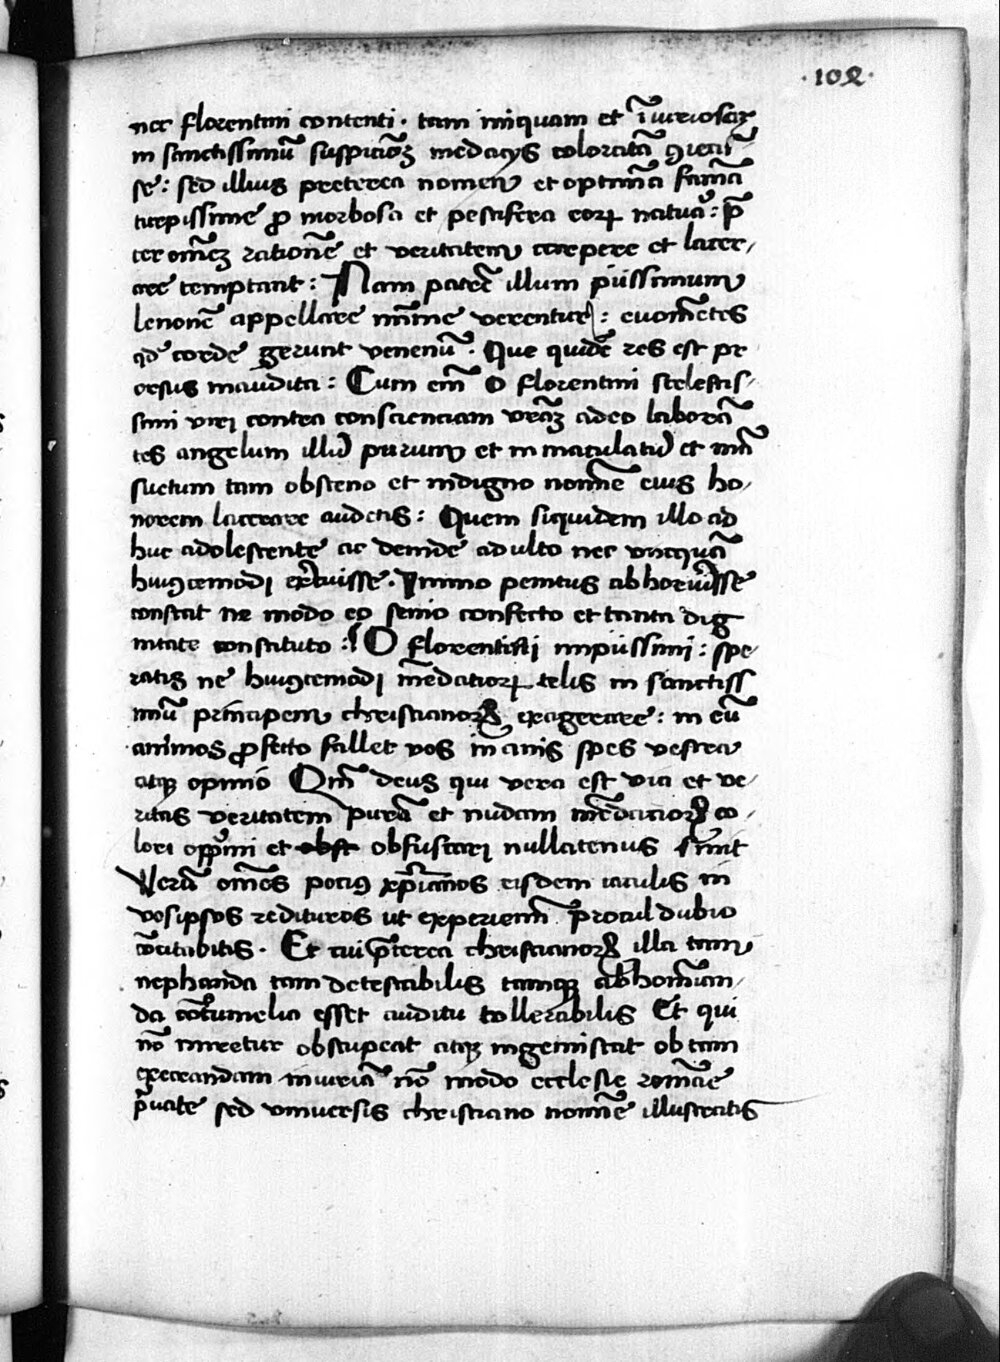 ·102·
nec florentini contenti · tam iniquam et īiuriosaȝ
in sanctissimū suspicionē mēdacijs coloratā ꝯieciſ
se : sed illius preterea nomen et optimā famā
turpissime ꝓ morbosa et pestifera eorꝝ naturā : p̄
ter omēȝ rationē et veritatem carpere et lacer
are temptant : Nam patrē illum pijssimum
lenonē appellare mīnime verentur : euomētes
qđ corde gerunt venenū · Que quidē res est pr
orsus inaudita : Cum em̄ O florentini scelestis
simi viri contra conscienciam vrāȝ adeo laborā
tes angelum illū purum et inmaculatū et in
suetum tam obsceno et indigno nomīe eius ho
norem lacerare audetis : Quem siquidem illo ad
huc adolescente ac deinde adulto nec vnꝗuā
huiꝰcemodi exerēuisse · Immo penitus abhoruisse
constat ne modo eo senio confecto et tanta dig
nitate constituto : O florentini impijssimi : spe
ratis ne huiꝰcemodi mēdatiorꝝ telis in sanctiss
imū principem christianorꝝ exagerare : in eū
animos ꝓfecto fallet vos inanis spes vestra
atqꝫ opinio Qm̄ deus qui vera est via et ve
ritas veritatem purā et nudam mēdatiorꝝ co
lori opp̄mi et obst obfuscari nullatenus sinit
Verū omēs potiꝰ xp̄ianos eisdem iaculis in
vosipsos redituros ut experiemī procul dubio
cōcitabitis · Et cui p̄terea christianorꝝ illa tam
nephanda tam detestabilis tamqꝫ abhomīan
da cōtumelia esset auditu tollerabilis Et qui
nō miretur obstupeat atqꝫ ingemiscat ob tam
execrandam iniuriā nō modo ecclesie romāe
p̄uate sed vniuersis christiano nomīe illustratis